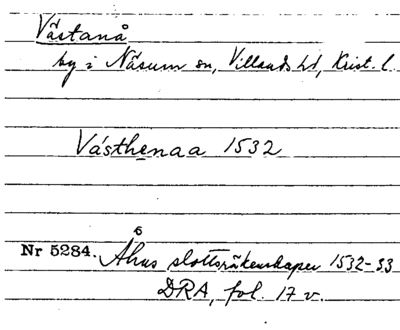 Västanå
by i Näsum sn, Villands hd, Krist. l.
Västhenaa 1532
6
Nr 5284. Åhus slottsräkenskaper 1532-33
DRA, fol. 17 v.